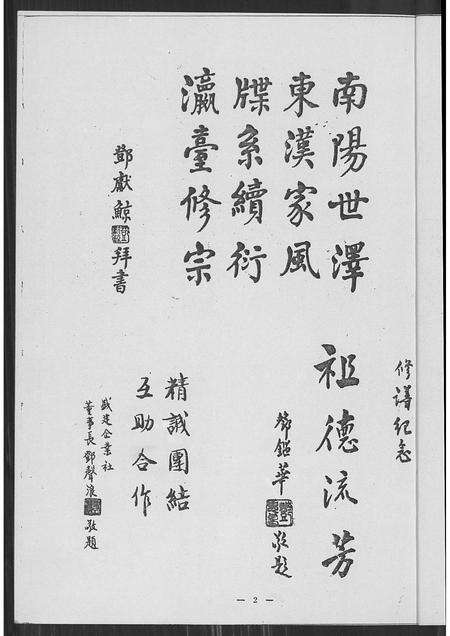 南陽世澤
東漢家風
牒系續衍
瀛臺修宗
鄧獻鯨拜書
修譜紀念
祖德流芳
鄧鎔華敬題
精誠團結
互助合作
盛建企業社
董事長鄧聲浪敬題
— 2 —